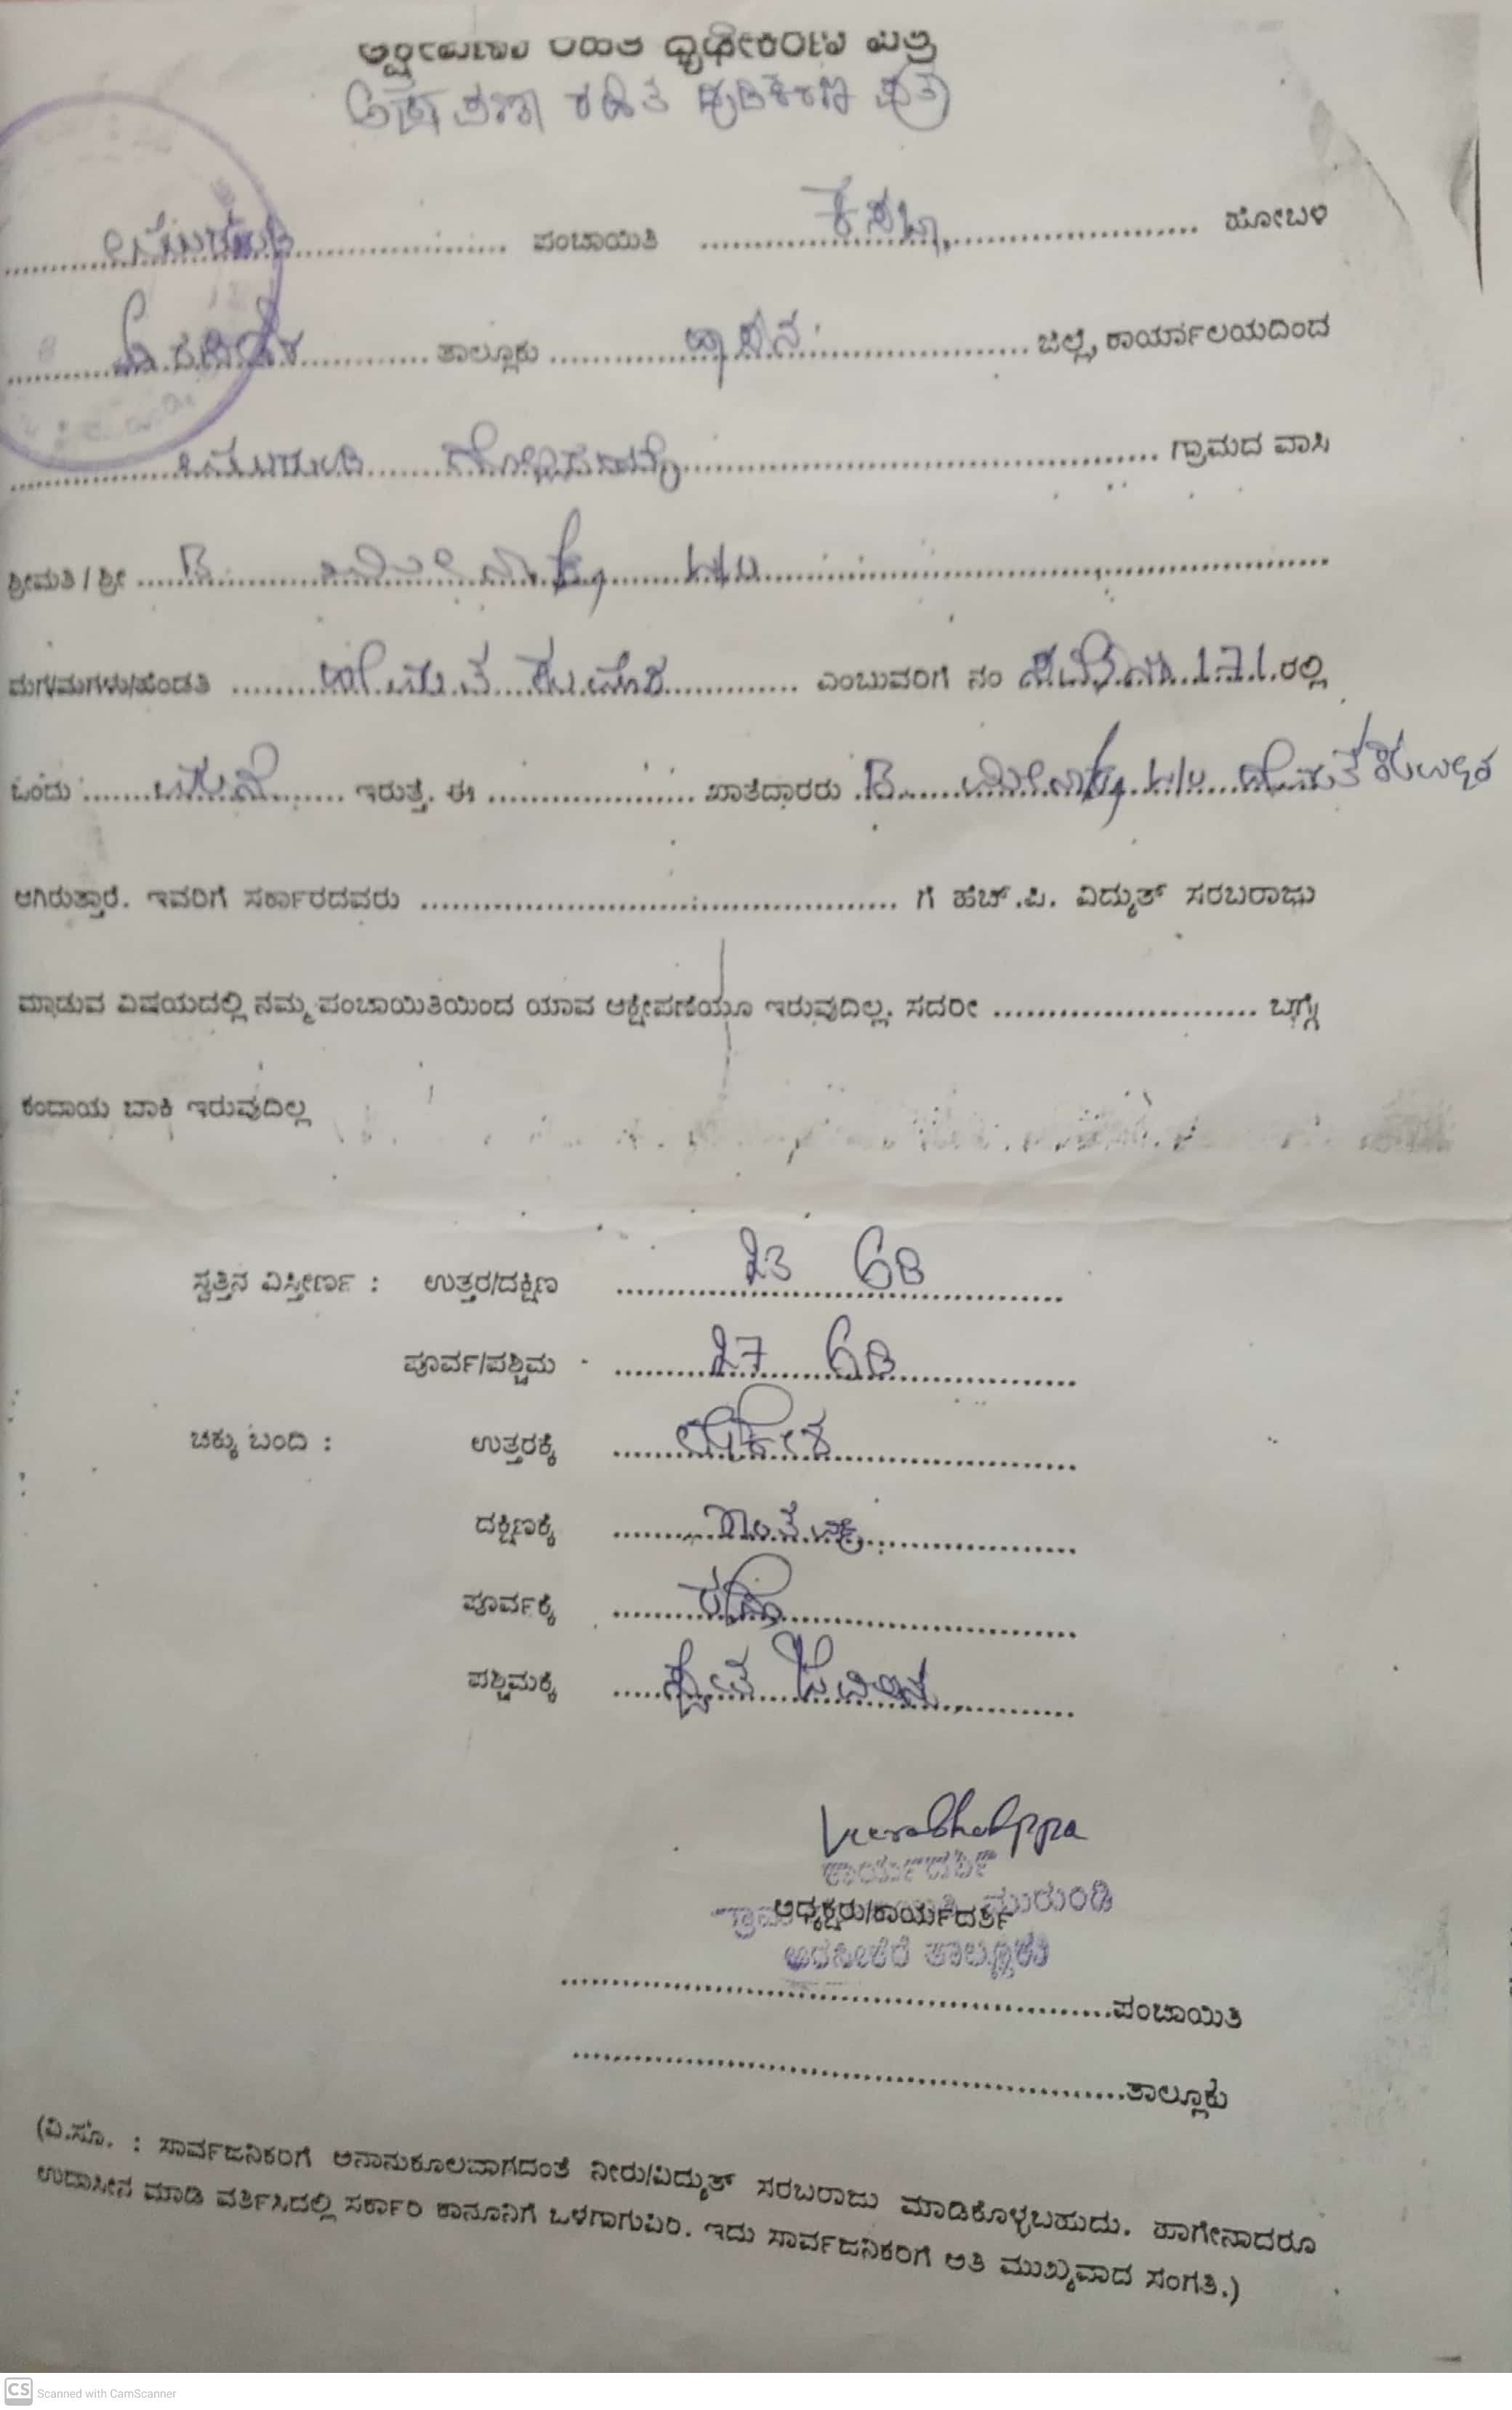 ಆಕ್ಷೇಪಣಾ ರಹಿತ ಧೃಢೀಕರಣ ಪತ್ರ
ರಹಿತ
............ ಪಂಚಾಯಿತಿ ............ ಕಸಬಾ ............ ಹೋಬಳಿ
............ ತಾಲ್ಲೂಕು ............ ಹಾಸನ ............ ಜಿಲ್ಲೆ, ಕಾರ್ಯಾಲಯದಿಂದ
............ ಗೊಲ್ಲರಹಟ್ಟಿ ............ ಗ್ರಾಮದ ವಾಸಿ
ಶ್ರೀಮತಿ / ಶ್ರೀ ...... B. ಮೀನಾಕ್ಷಿ W/o ............
ಮಗ/ಮಗಳು/ಹೆಂಡತಿ ............ ಹೇಮಂತ ಕುಮಾರ ............ ಎಂಬುವರಿಗೆ ನಂ 171 ರಲ್ಲಿ
ಒಂದು ...... ಮನೆ ...... ಇರುತ್ತೆ. ಈ ............ ಖಾತೆದಾರರು B. ಮೀನಾಕ್ಷಿ W/o ಹೇಮಂತ ಕುಮಾರ
ಆಗಿರುತ್ತಾರೆ. ಇವರಿಗೆ ಸರ್ಕಾರದವರು ............ ಗೆ ಹೆಚ್.ಪಿ. ವಿದ್ಯುತ್ ಸರಬರಾಜು
ಮಾಡುವ ವಿಷಯದಲ್ಲಿ ನಮ್ಮ ಪಂಚಾಯಿತಿಯಿಂದ ಯಾವ ಆಕ್ಷೇಪಣೆಯೂ ಇರುವುದಿಲ್ಲ. ಸದರೀ ............ ಬಗ್ಗೆ
ಕಂದಾಯ ಬಾಕಿ ಇರುವುದಿಲ್ಲ
ಸ್ವತ್ತಿನ ವಿಸ್ತೀರ್ಣ : ಉತ್ತರ/ದಕ್ಷಿಣ ...... 23 ......
ಪೂರ್ವ/ಪಶ್ಚಿಮ ...... 27 ......
ಚಕ್ಕು ಬಂದಿ : ಉತ್ತರಕ್ಕೆ ............
ದಕ್ಷಿಣಕ್ಕೆ ............
ಪೂರ್ವಕ್ಕೆ ...... ರಸ್ತೆ ......
ಪಶ್ಚಿಮಕ್ಕೆ ............
Veerabhadrappa
ಕಾರ್ಯದರ್ಶಿ
ಅಧ್ಯಕ್ಷರು/ಕಾರ್ಯದರ್ಶಿ
ಗ್ರಾಮ ಮುರುಂಡಿ
ಅರಸೀಕೆರೆ ತಾಲ್ಲೂಕು
............ಪಂಚಾಯಿತಿ
............ತಾಲ್ಲೂಕು
(ವಿ.ಸೂ. : ಸಾರ್ವಜನಿಕರಿಗೆ ಅನಾನುಕೂಲವಾಗದಂತೆ ನೀರು/ವಿದ್ಯುತ್ ಸರಬರಾಜು ಮಾಡಿಕೊಳ್ಳಬಹುದು. ಹಾಗೇನಾದರೂ
ಉದಾಸೀನ ಮಾಡಿ ವರ್ತಿಸಿದಲ್ಲಿ ಸರ್ಕಾರಿ ಕಾನೂನಿಗೆ ಒಳಗಾಗುವಿರಿ. ಇದು ಸಾರ್ವಜನಿಕರಿಗೆ ಅತಿ ಮುಖ್ಯವಾದ ಸಂಗತಿ.)
CS Scanned with CamScanner